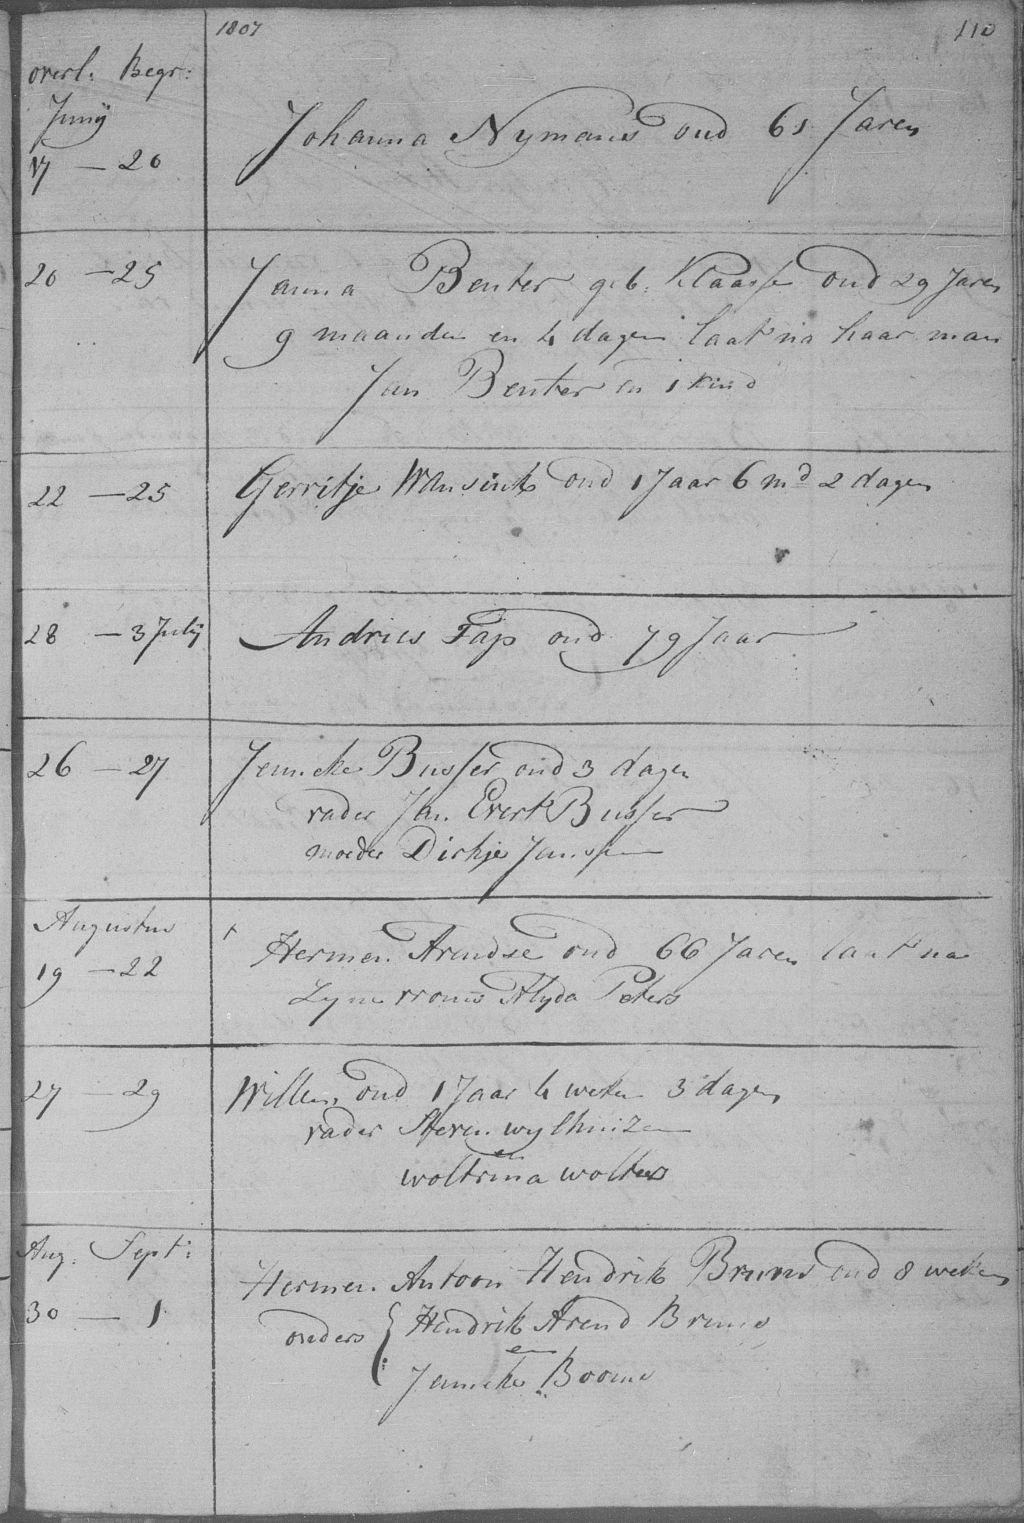 1807
110
overl: Begr:
Junij
17 — 20
Johanna Nymans oud 61 Jaren
20 — 25
Janna Benter geb. Klaasse oud 29 Jaren
9 maanden en 4 dagen laat na haar man
Jan Benter en 1 kind
22 — 25
Gerritje Wansink oud 1 Jaar 6 md 2 dagen
28 — 3 Julij
Andries Tap oud 79 Jaar
26 — 27
Jenneke Busser oud 3 dagen
vader Jan Evert Busser
moeder Dirkje Janssen
Augustus
19 — 22
Hermen Arendse oud 66 Jaren laat na
Zyne vrouw Alyda Peters
27 — 29
Willem oud 1 Jaar 4 weken 3 dagen
vader Steven wylhuizen
en
woltrina wolters
Aug. Sept:
30 — 1
Hermen Antoon Hendrik Bruns oud 8 weken
ouders { Hendrik Arend Bruns
en
Jenneke Boome